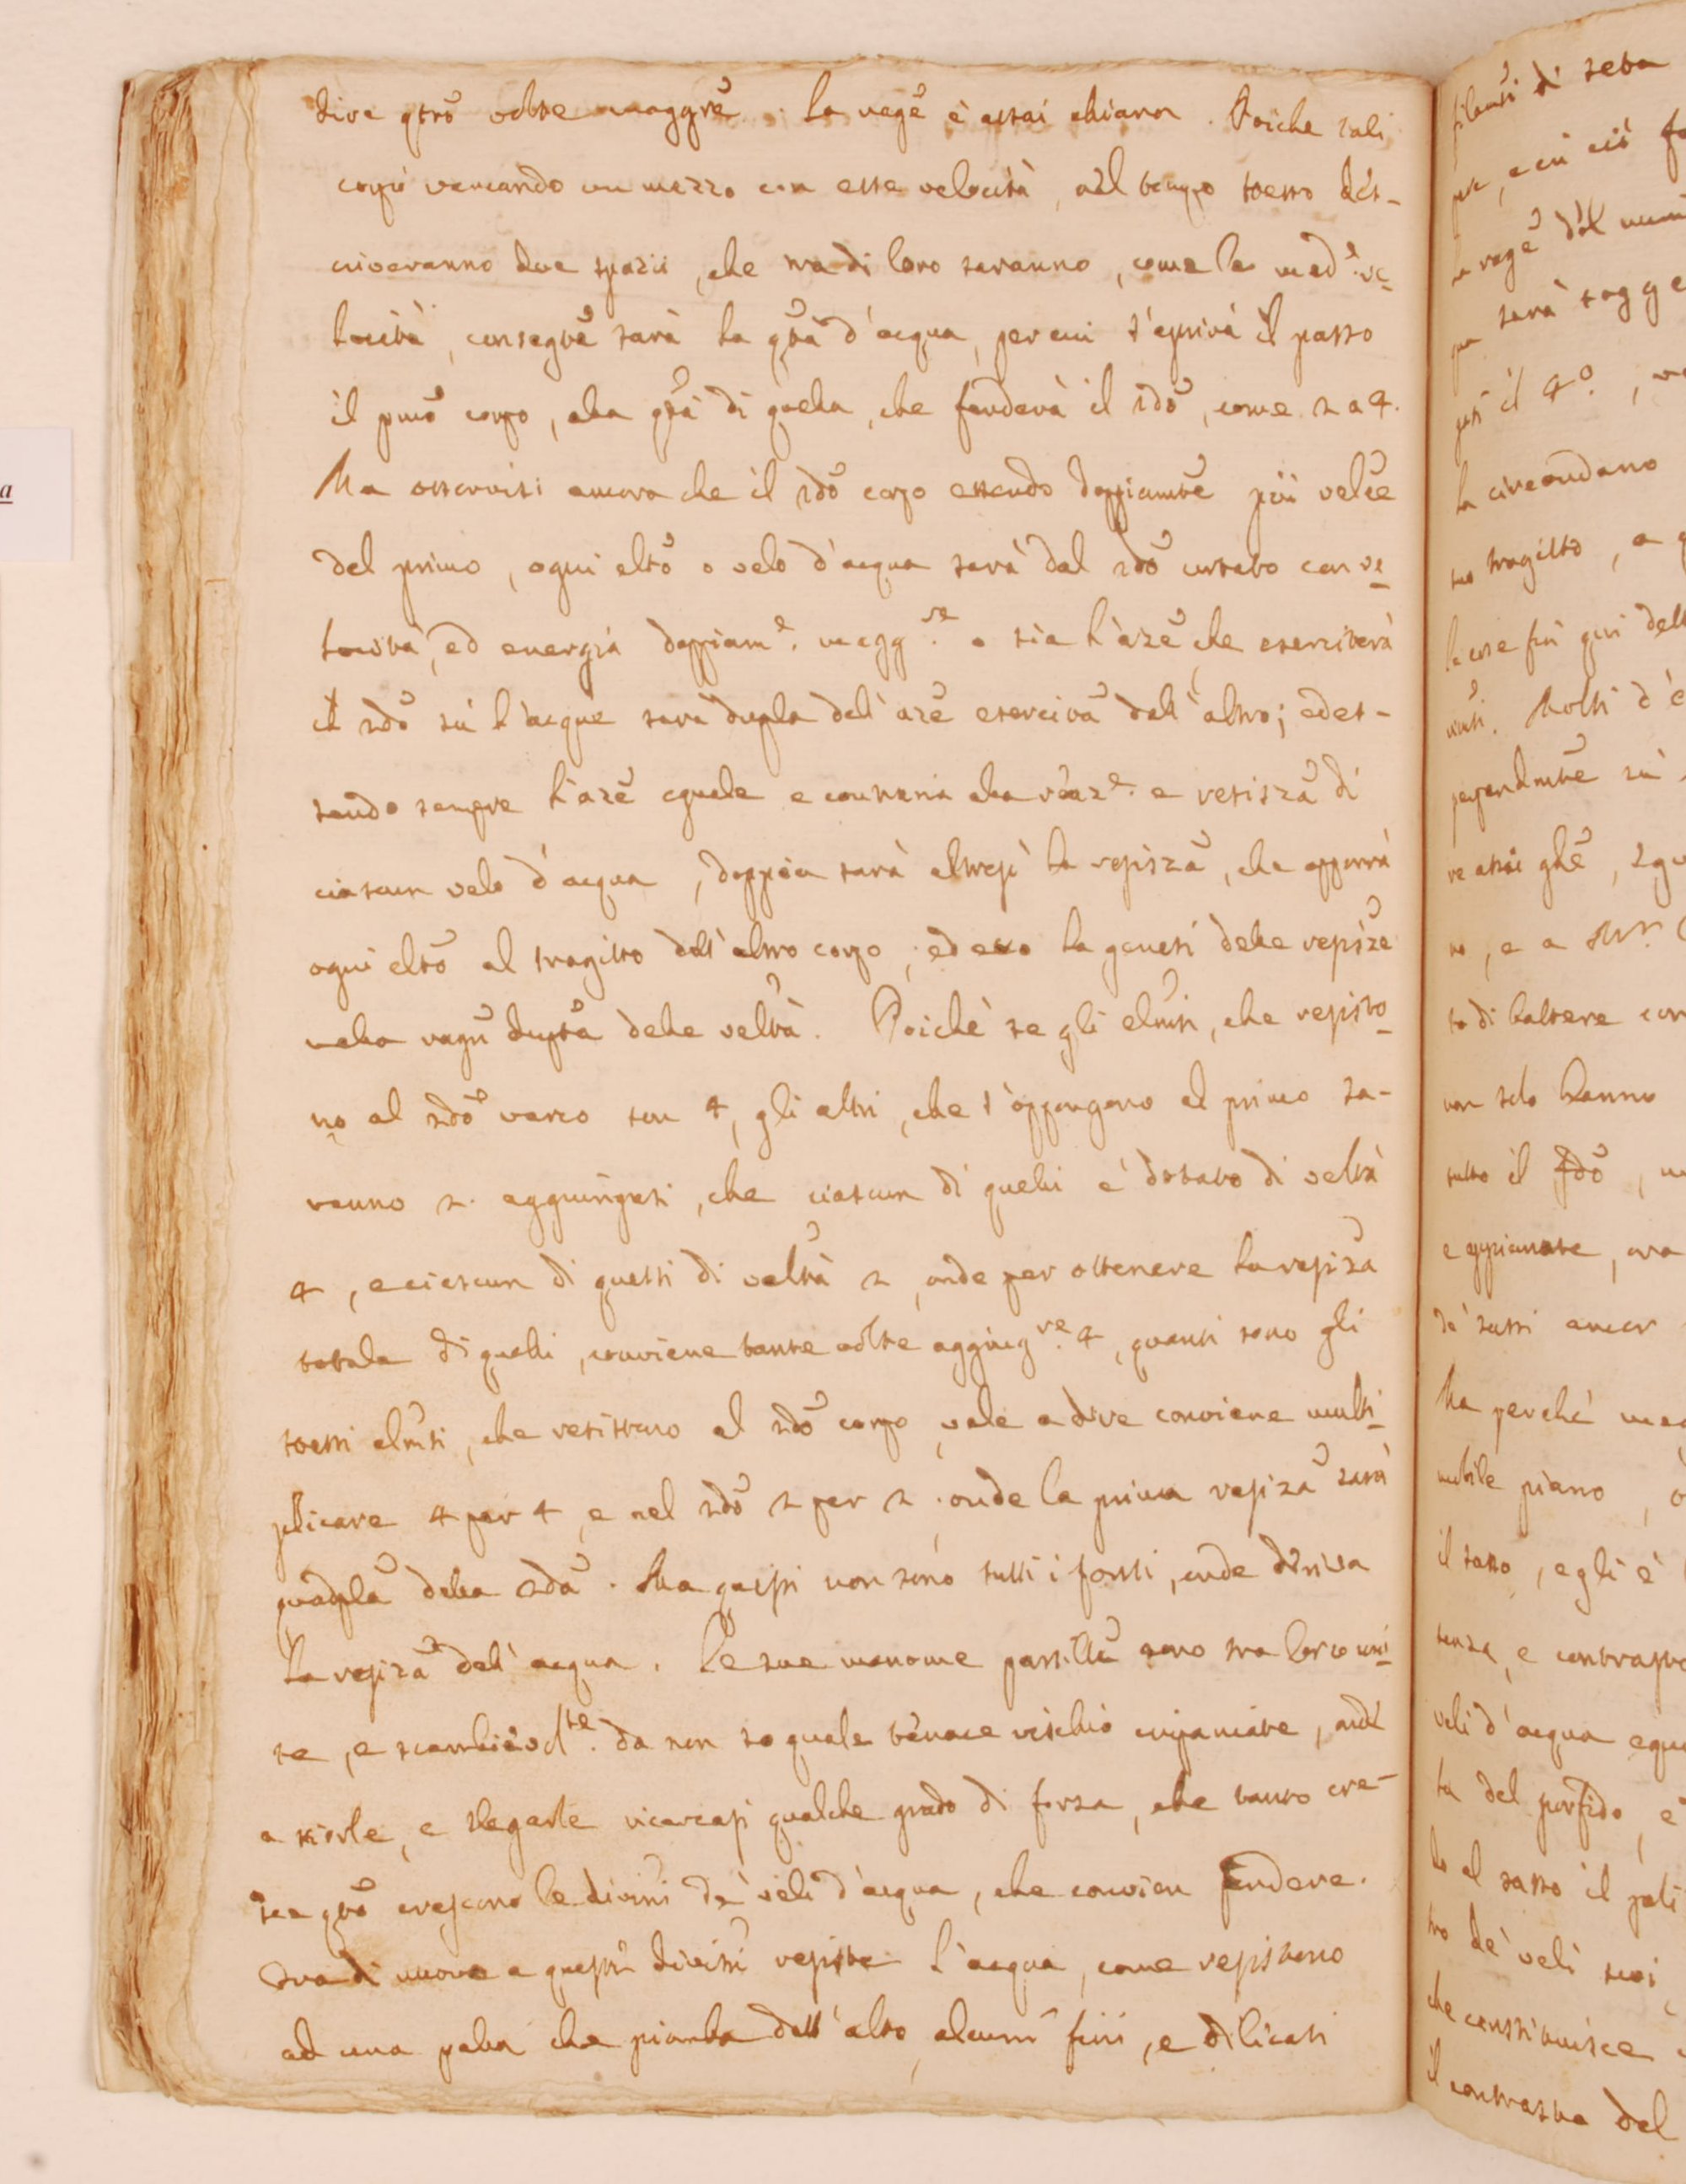 dire qtrõ volte maggrẽ. La ragẽ è assai chiara. Poiche tali
corpi varcando un mezzo con esse velocità, nel tempo stesso des-
criveranno due spazii, che tra di loro saranno, come le medẽ. ve-
locità, consegtẽ sarà la qtã d'acqua, per cui s'aprirà il passo
il pmõ corpo, alla qtã di quella, che fenderà il 2dõ, come 2 a 4.
Ma osservisi ancora che il 2dõ corpo essendo doppiamtẽ più velõe
del primo, ogni eltõ o velo d'acqua sarà dal 2dõ urtato con ve-
locità, ed energia doppiam.e magg.re o sia l'azẽ, che eserciterà
il 2dõ sù l'acque sarà dupla dell'azẽ esercitã dall'altro; ed es-
sendo sempre l'azẽ eguale e contraria alla reaz.e e resiszã di
ciascun velo d'acqua, doppia sarà altresì la resiszã, che opporrà
ogni eltõ al tragitto dell'altro corpo; ed ecco la genesi delle resisze
nella ragñ duptã delle veltà. Poichè se gli elmti, che resisto-
no al 2dõ varco son 4, gli altri, che s'oppongono al primo sa-
ranno 2. aggiungasi, che ciascun di quelli è dotato di veltà
4, e ciascun di questi di veltà 2, onde per ottenere la resizã
totale di quelli, conviene tante volte aggiug.re 4, quanti sono gli
stessi elmti, che resistono al 2dõ corpo, vale a dire conviene multi-
plicare 4 per 4, e nel 2dõ 2 per 2. onde la prima resizã sarà
quadplã della 2dã. Ma questi non sono tutti i fonti, onde deriva
la resizã dell'acqua. Le sue menome partillẽ sono tra loro uni-
te, e scambievol.te da non so quale tenace vischio impaniate, onde
a sciorle, e slegarle ricercasi qualche grado di forza, che tanto cre-
sce qtõ crescono le divini de' veli d'acqua, che convien fendere.
Ora di nuovo a queste divisñi resiste l'acqua, come resistono
ad una palla che piomba dall'alto, alcuni fini, e dilicati
filamti di seta
la ragẽ del
sarà sogge
il 4.o
la circondano
suo tragitto, a
le cose fin qui dell
Molti d'e
perpendmtẽ sù
re assai ghẽ,
no, e a Mr.
to di battere con
non solo hanno
tutto il fdõ,
e appianate, ora
de' sassi ancor
Ma perchè
mobile piano,
il sasso, egli è
tenza, e contrasto
veli d'acqua egu
ta del porfido, e
lo al sasso il poli
tro de' veli suoi,
che constituisce
il contrasta del